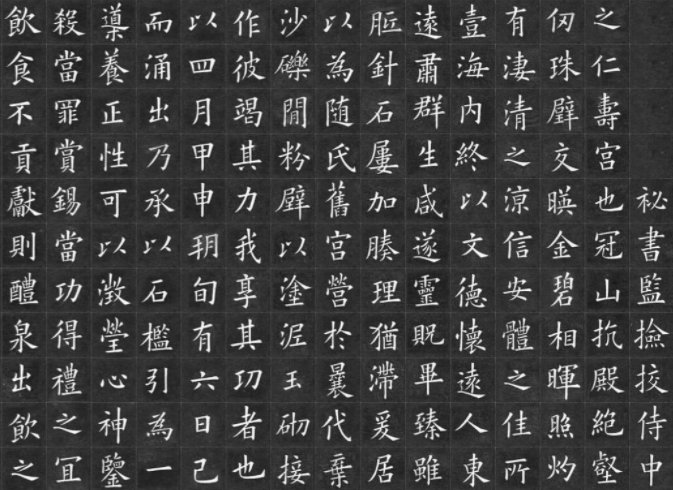 祕書監撿挍侍中
之仁壽宮也冠山抗殿絕壑
仞珠壁交暎金碧相暉照灼
有淒清之涼信安體之佳所
壹海內終以文德懷遠人東
遠肅群生咸遂靈貺畢臻雖
胝針石屢加腠理猶滯爰居
以為随氏舊宮營於曩代棄
沙礫閒粉壁以塗泥玉砌接
作彼竭其力我享其功者也
以四月甲申朔旬有六日己
而涌出乃承以石檻引為一
導養正性可以澂瑩心神鑒
殺當罪賞錫當功得禮之冝
飲食不貢獻則醴泉出飲之